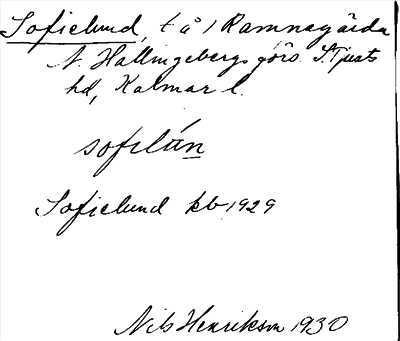 Sofielund, t å 1 Ramnagärda
N. Hallingebergs grbs. S. Tjusts
hd, Kalmar l.
sofɩlún
Sofielund kb 1929
Nils Henrikson 1930